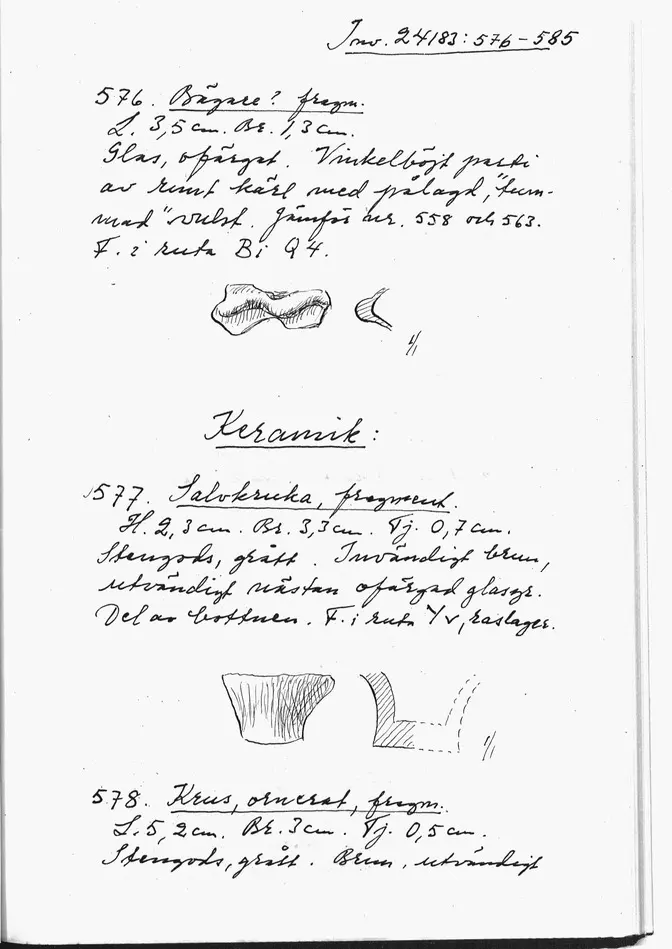 Inv. 24183:576-585
576. Bägare? fragm.
L. 3,5 cm. Br. 1,3 cm.
Glas, ofärgat. Vinkelböjt parti
av runt kärl med pålagd, "tum-
mad" vulst. Jämför nr. 558 och 563.
F. i ruta Bi Q 4.
1/1
Keramik:
577. Salvkruka, fragment.
H. 2,3 cm. Br. 3,3 cm. Tj. 0,7 cm.
Stengods, grått. Invändigt brun,
utvändigt nästan ofärgad glasyr.
Del av bottnen. F. i ruta Yv, raslager.
1/1
578. Krus, ornerat, fragm.
L. 5,2 cm. Br. 3 cm. Tj. 0,5 cm.
Stengods, grått. Brun, utvändigt